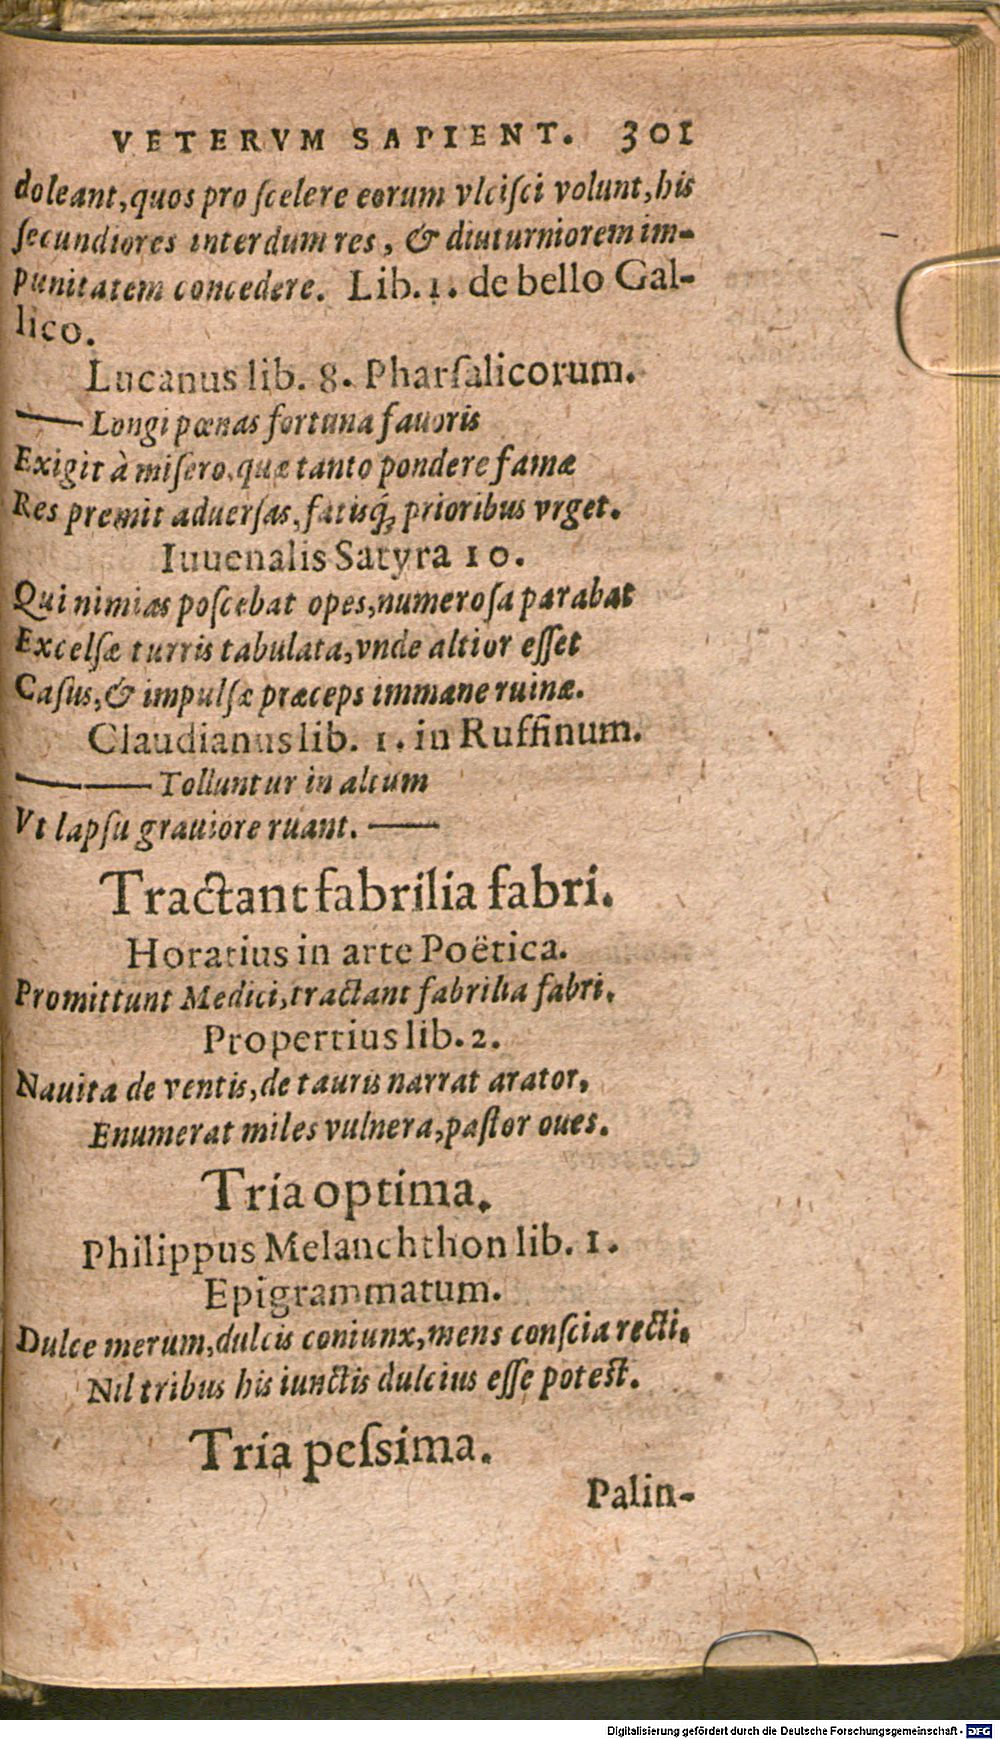 VETERVM SAPIENT. 301
doleant, quos pro ſcelere eorum vlciſci volunt, his
ſecundiores interdum res, & diuturniorem im-
punitatem concedere. Lib. 1. de bello Gal-
lico.
Lucanus lib. 8. Pharſalicorum.
—— Longi pœnas fortuna fauoris
Exigit à miſero, quæ tanto pondere famæ
Res premit aduerſas, fatisq́; prioribus vrget.
Iuuenalis Satyra 10.
Qui nimias poſcebat opes, numeroſa parabat
Excelſæ turris tabulata, vnde altior eſſet
Caſus, & impulſæ præceps immane ruinæ.
Claudianus lib. 1. in Ruffinum.
———— Tolluntur in altum
Vt lapſu grauiore ruant. ——
Tractant fabrilia fabri.
Horatius in arte Poëtica.
Promittunt Medici, tractant fabrilia fabri.
Propertius lib. 2.
Nauita de ventis, de tauris narrat arator,
Enumerat miles vulnera, paſtor oues.
Tria optima.
Philippus Melanchthon lib. 1.
Epigrammatum.
Dulce merum, dulcis coniunx, mens conſcia recti.
Nil tribus his iunctis dulcius eſſe poteſt.
Tria peſsima.
Palin-
Digitalisierung gefördert durch die Deutsche Forschungsgemeinschaft - DFG